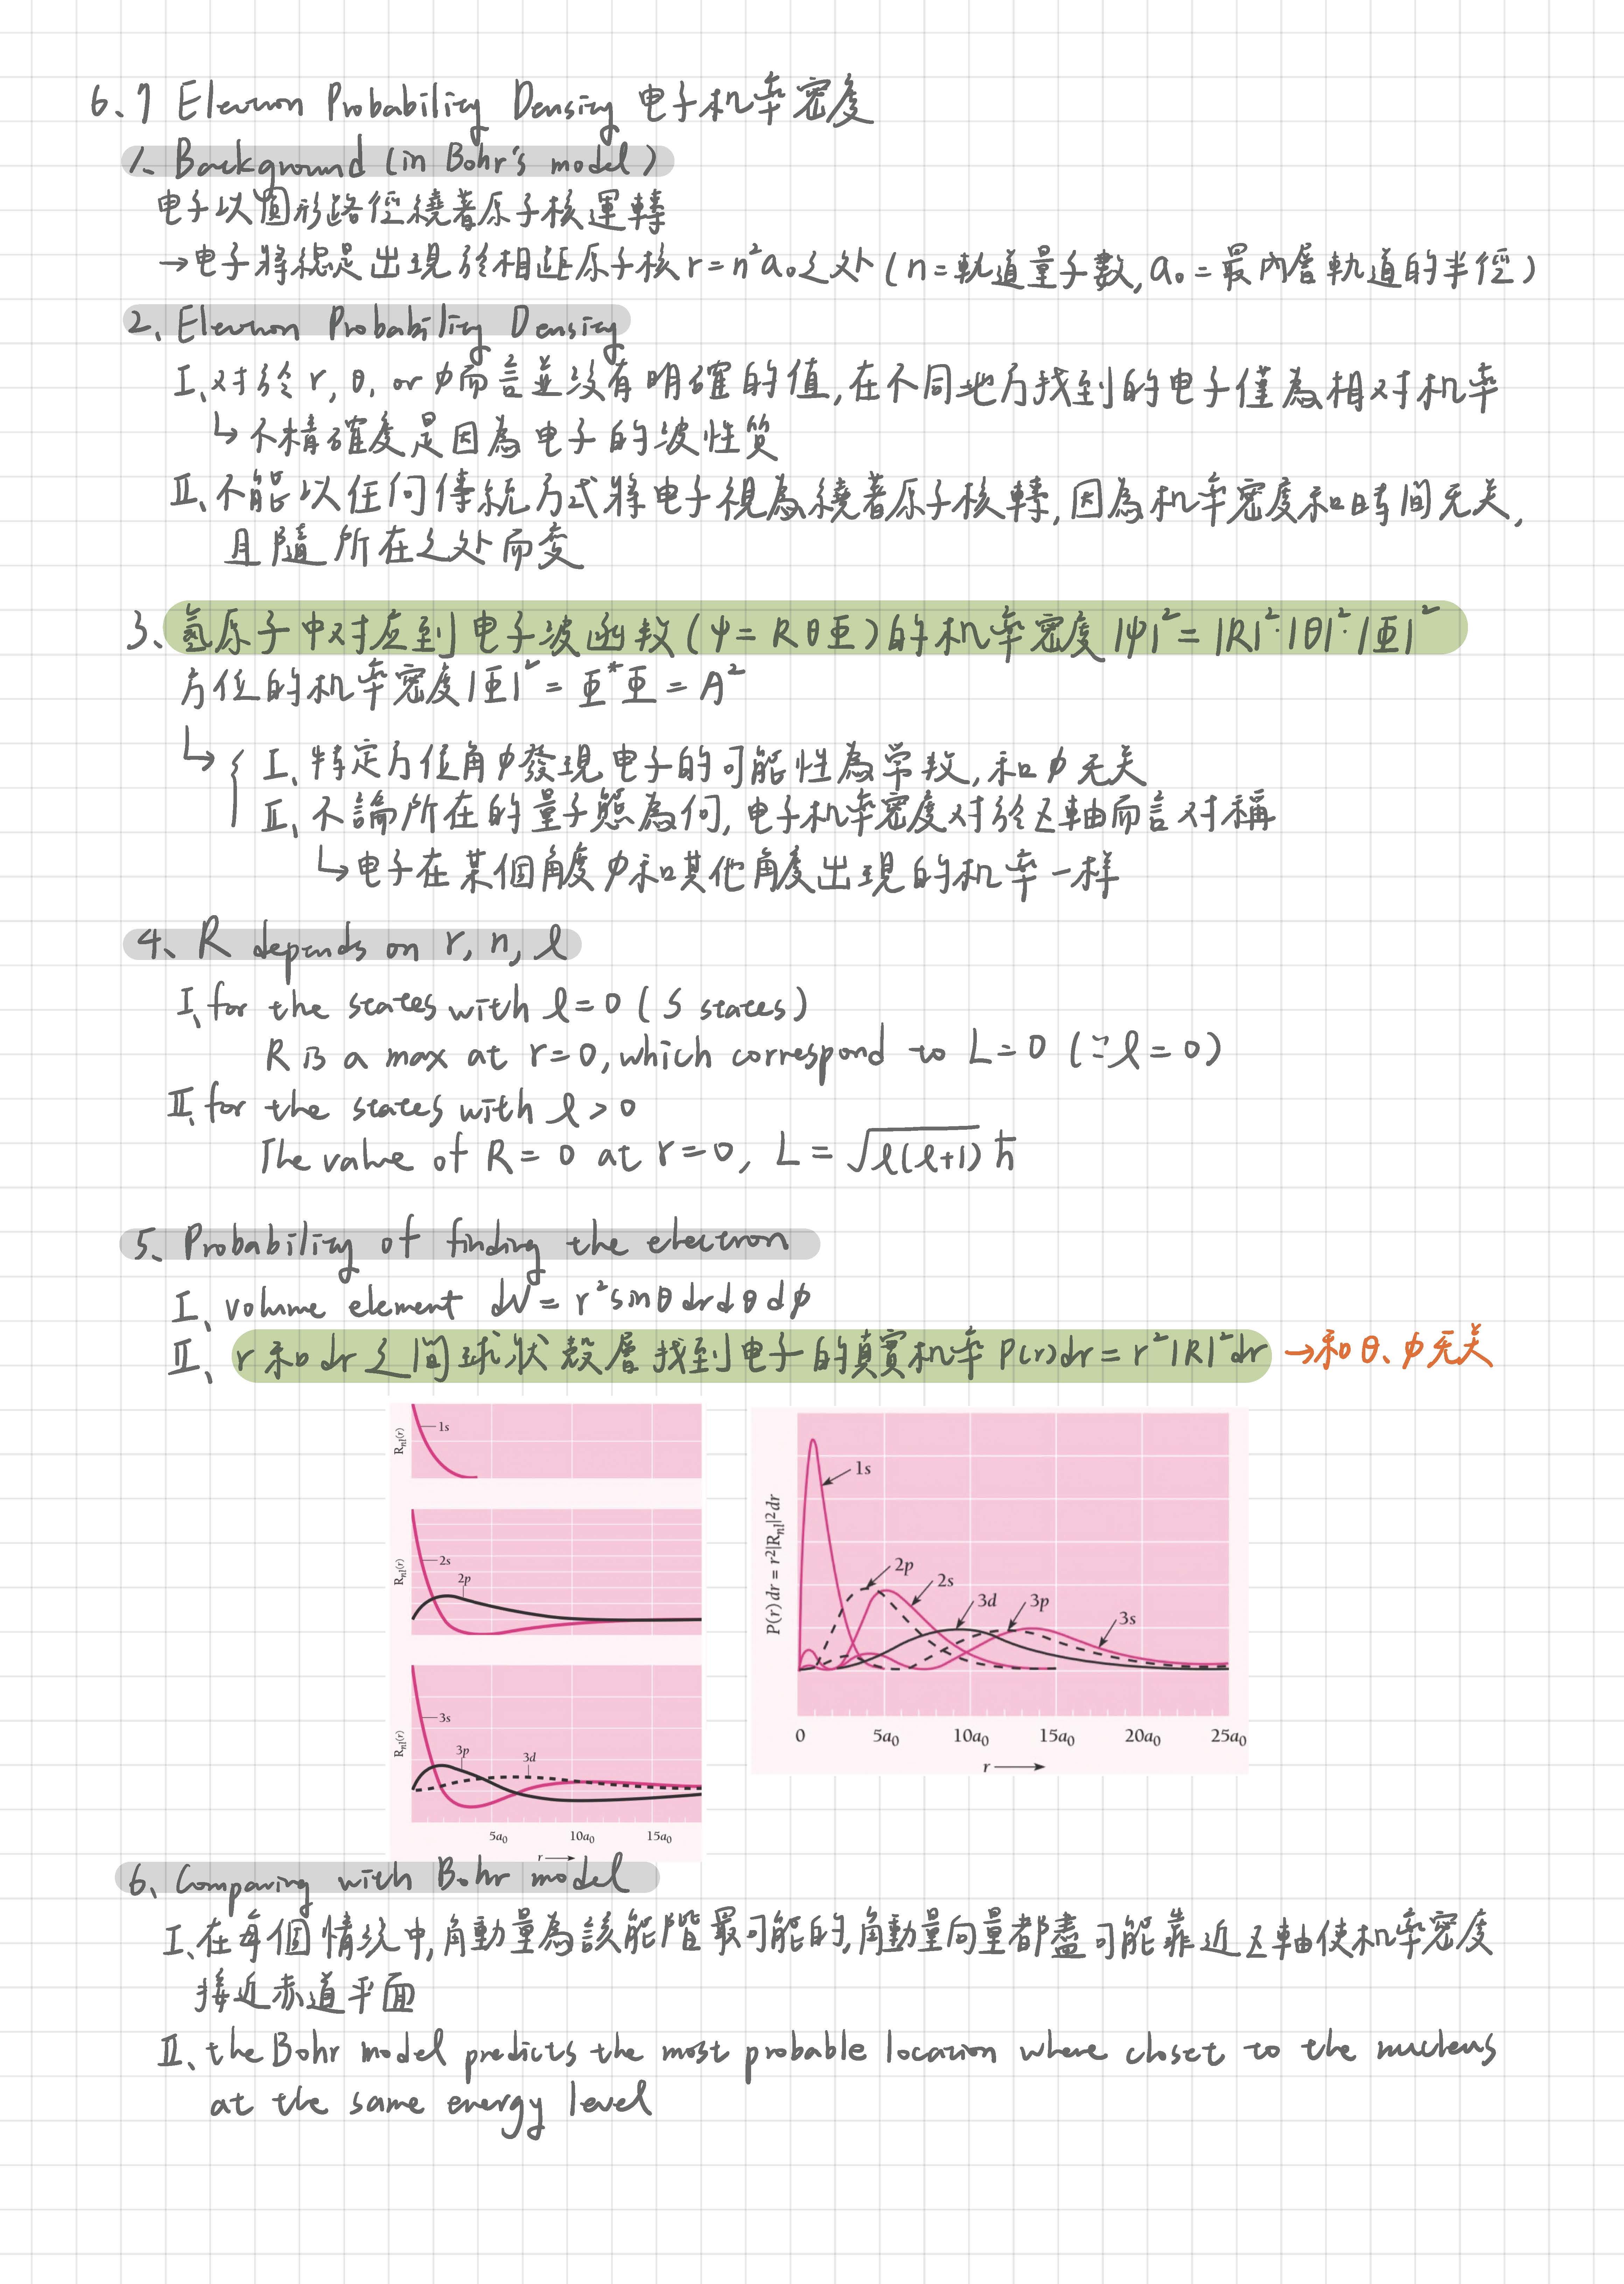 6、7 Electron Probability Density 电子机率密度
1、Background (in Bohr's model)
电子以圓形路徑繞著原子核運轉
→电子將總是出現於相距原子核 r = n²a₀之处 (n = 軌道量子數, a₀ = 最內層軌道的半徑)
2、Electron Probability Density
I、对於 r, θ, or φ而言並沒有明確的值, 在不同地方找到的电子僅為相对机率
↳ 不精確度是因為电子的波性質
II、不能以任何傳統方式將电子視為繞著原子核轉, 因為机率密度和時间无关,
且隨所在之处而变
3、氫原子中对应到电子波函数 (ψ = RθΦ) 的机率密度 |ψ|² = |R|²·|θ|²·|Φ|²
方位的机率密度 |Φ|² = Φ*Φ = A²
↳ { I、特定方位角φ發現电子的可能性為常数, 和φ无关
II、不論所在的量子態為何, 电子机率密度对於z軸而言对稱
↳电子在某個角度φ和其他角度出現的机率一样
4、R depends on r, n, ℓ
I、for the states with ℓ = 0 (S states)
R is a max at r = 0, which correspond to L = 0 (∵ℓ = 0)
II、for the states with ℓ > 0
The value of R = 0 at r = 0, L = √ℓ(ℓ+1) ħ
5、Probability of finding the electron
I、volume element dV = r²sinθdrdθdφ
II、r和dr之间球状殼層找到电子的真實机率 P(r)dr = r²|R|²dr →和θ、φ无关
Rnl(r)
1s
Rnl(r)
2s
2p
Rnl(r)
3s
3p
3d
5a₀ 10a₀ 15a₀
r →
P(r) dr = r²|Rnl|² dr
1s
2p
2s
3d
3p
3s
0 5a₀ 10a₀ 15a₀ 20a₀ 25a₀
r →
6、Comparing with Bohr model
I、在每個情況中, 角動量為該能階最可能的, 角動量向量都盡可能靠近z軸使机率密度
接近赤道平面
II、the Bohr model predicts the most probable location where closet to the nucleus
at the same energy level